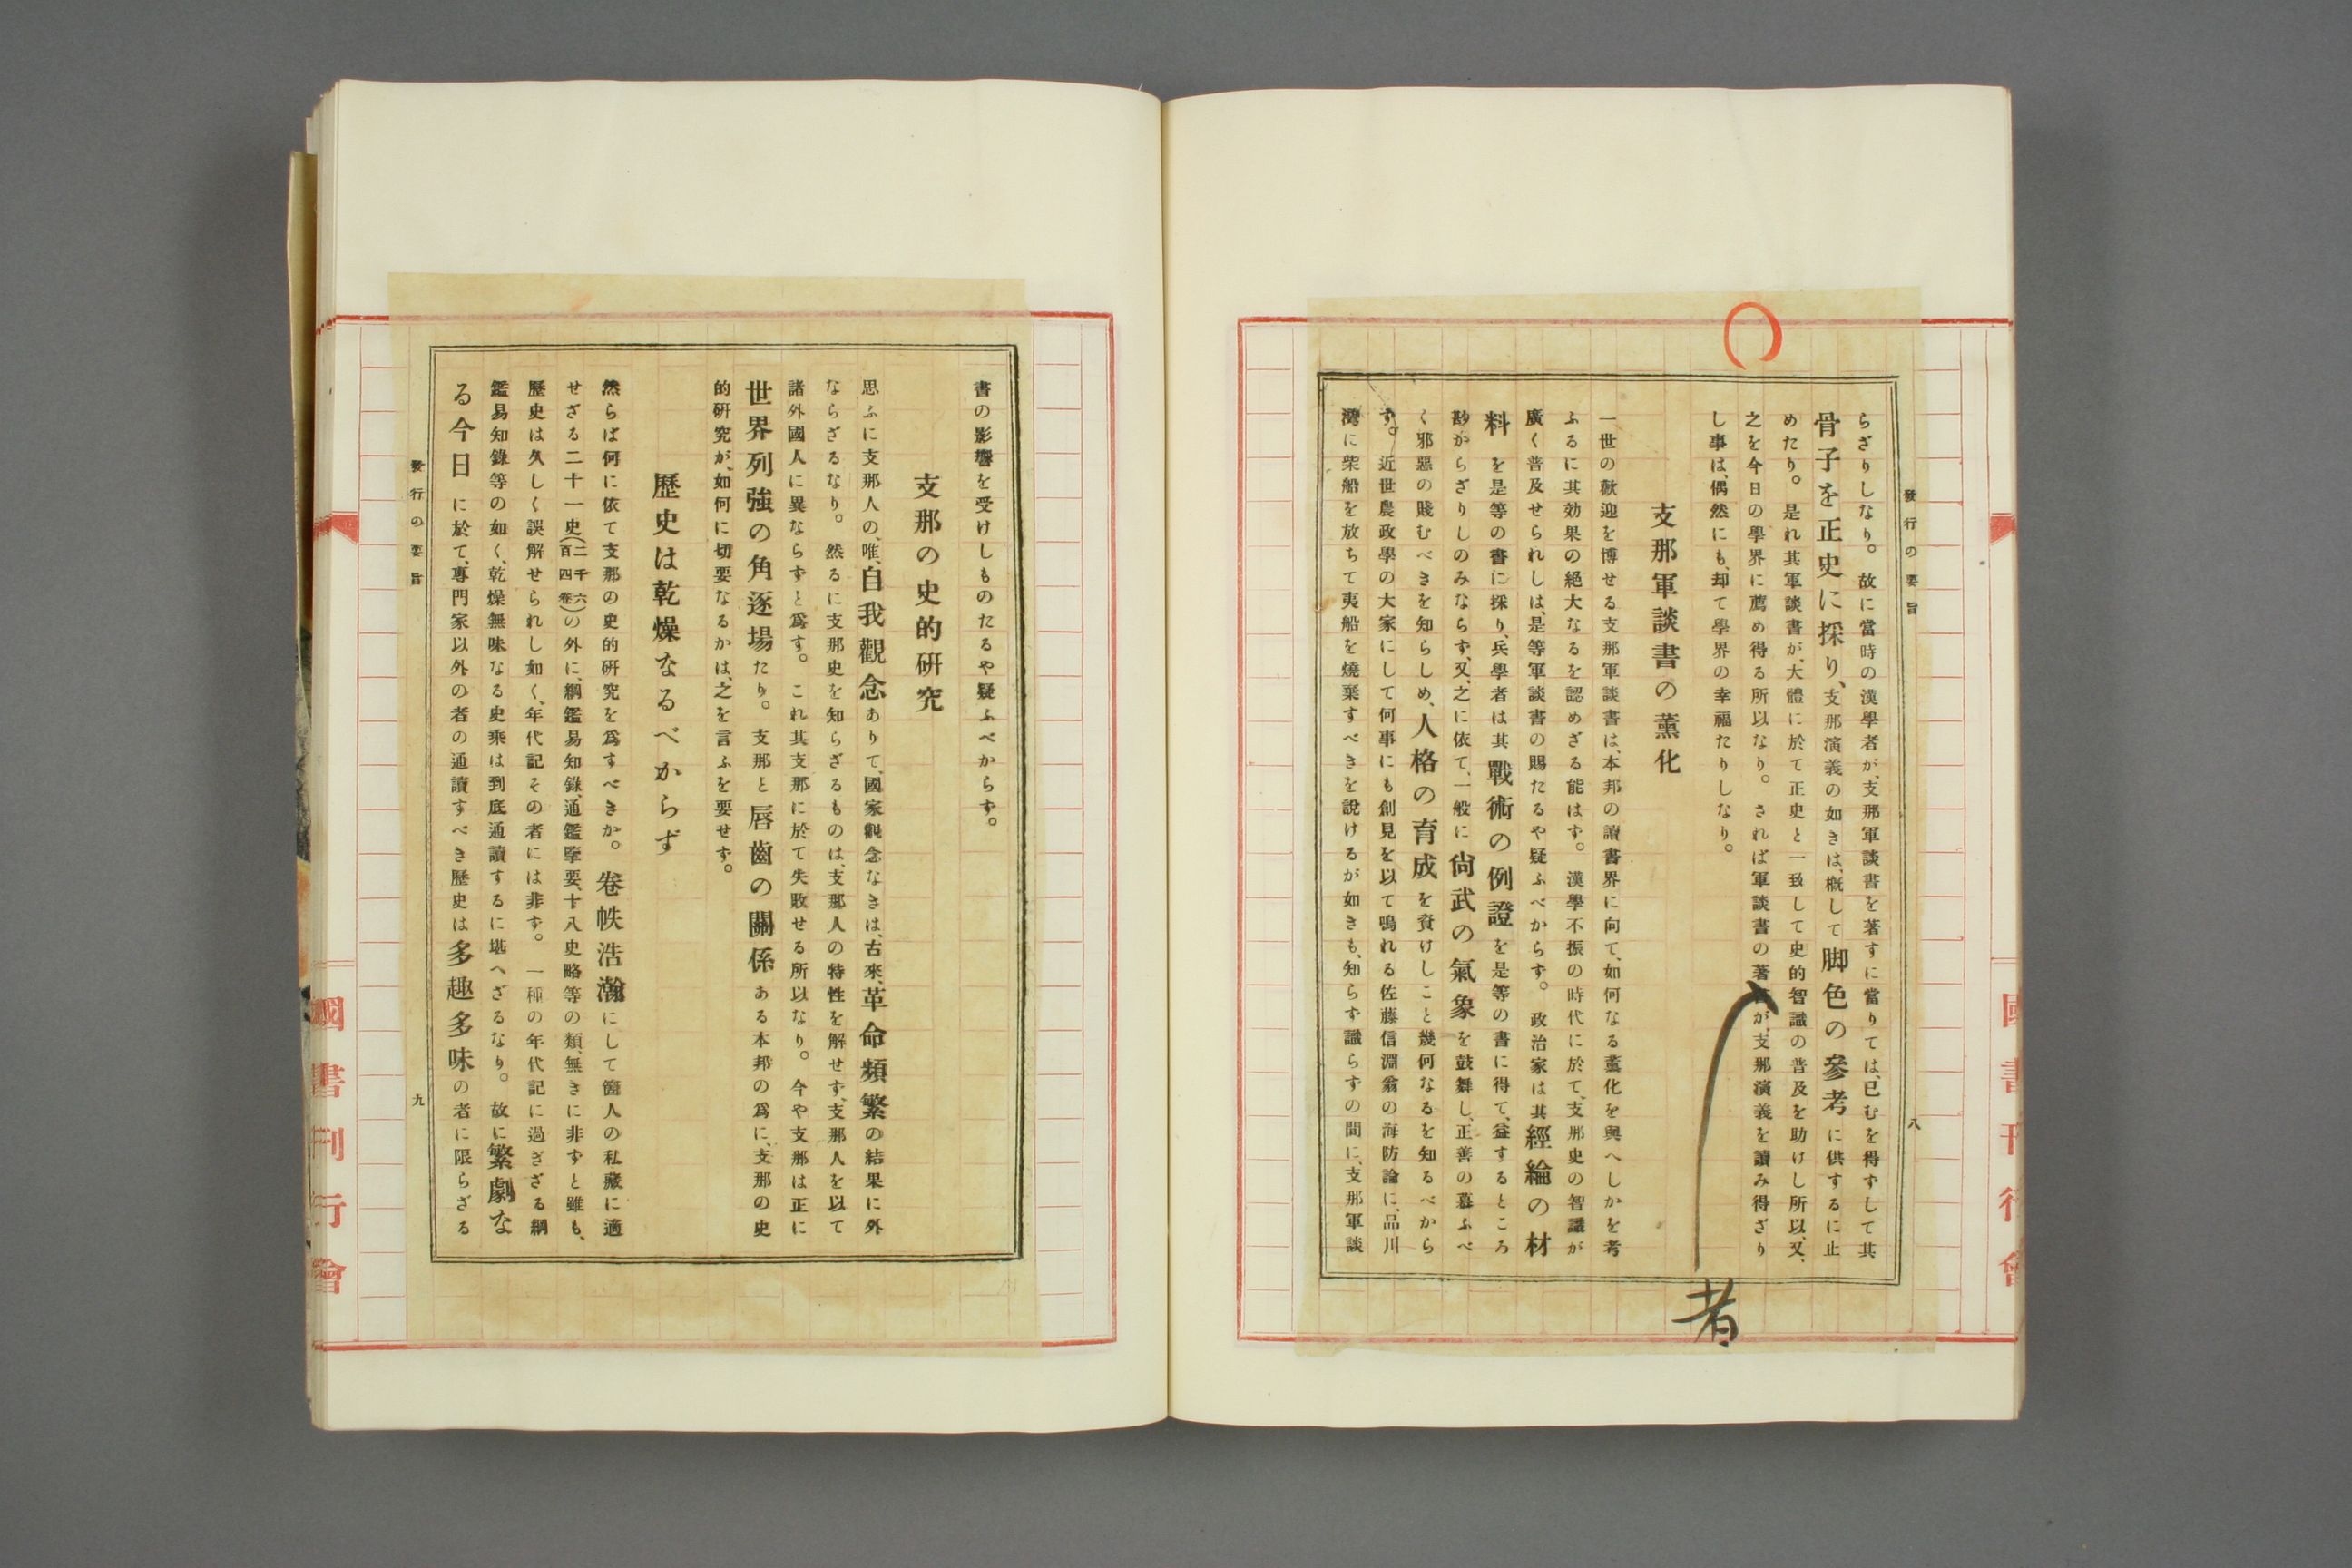 發行の要旨
八
らざりしなり。故に當時の漢學者が、支那軍談書を著すに當りては、已むを得ずして其
骨子を正史に採り、支那演義の如きは、概して脚色の參考に供するに止
めたり。是れ其軍談書が、大體に於て正史と一致して史的智識の普及を助けし所以、又、
之を今日の學界に薦め得る所以なり。されば軍談書の著が、支那演義を讀み得ざり
者
し事は、偶然にも、却て學界の幸福たりしなり。
支那軍談書の薫化
一世の歡迎を博せる支那軍談書は、本邦の讀書界に向て、如何なる薫化を與へしかを考
ふるに其効果の絕大なるを認めざる能はず。漢學不振の時代に於て、支那史の智識が
廣く普及せられしは、是等軍談書の賜たるや疑ふべからず。政治家は其經綸の材
料を是等の書に採り、兵學者は其戰術の例證を是等の書に得て、益するところ
尠からざりしのみならず、又、之に依て、一般に尙武の氣象を鼓舞し、正善の慕ふべ
く邪惡の賤むべきを知らしめ、人格の育成を資けしこと幾何なるを知るべから
ず。近世農政學の大家にして何事にも創見を以て鳴れる佐藤信淵翁の海防論に、品川
灣に柴船を放ちて夷船を燒棄すべきを說けるが如きも、知らず識らずの間に、支那軍談
國書刊行會
書の影響を受けしものたるや疑ふべからず。
支那の史的硏究
思ふに支那人の、唯、自我觀念ありて、國家觀念なきは、古來、革命頻繁の結果に外
ならざるなり。然るに支那史を知らざるものは、支那人の特性を解せず、支那人を以て
諸外國人に異ならずと爲す。これ其支那に於て失敗せる所以なり。今や支那は正に
世界列強の角逐場たり。支那と唇齒の關係ある本邦の爲に、支那の史
的硏究が、如何に切要なるかは、之を言ふを要せず。
歷史は乾燥なるべからず
然らば何に依て支那の史的硏究を爲すべきか。卷帙浩瀚にして箇人の私藏に適
せざる二十一史(二千六百四卷)の外に、綱鑑易知錄、通鑑擥要、十八史略等の類、無きに非ずと雖も、
歷史は久しく誤解せられし如く、年代記その者には非ず。一種の年代記に過ぎざる綱
鑑易知錄等の如く、乾燥無味なる史乘は到底通讀するに堪へざるなり。故に繁劇な
る今日に於て、專門家以外の者の通讀すべき歷史は多趣多味の者に限らざる
發行の要旨
九
國書刊行會